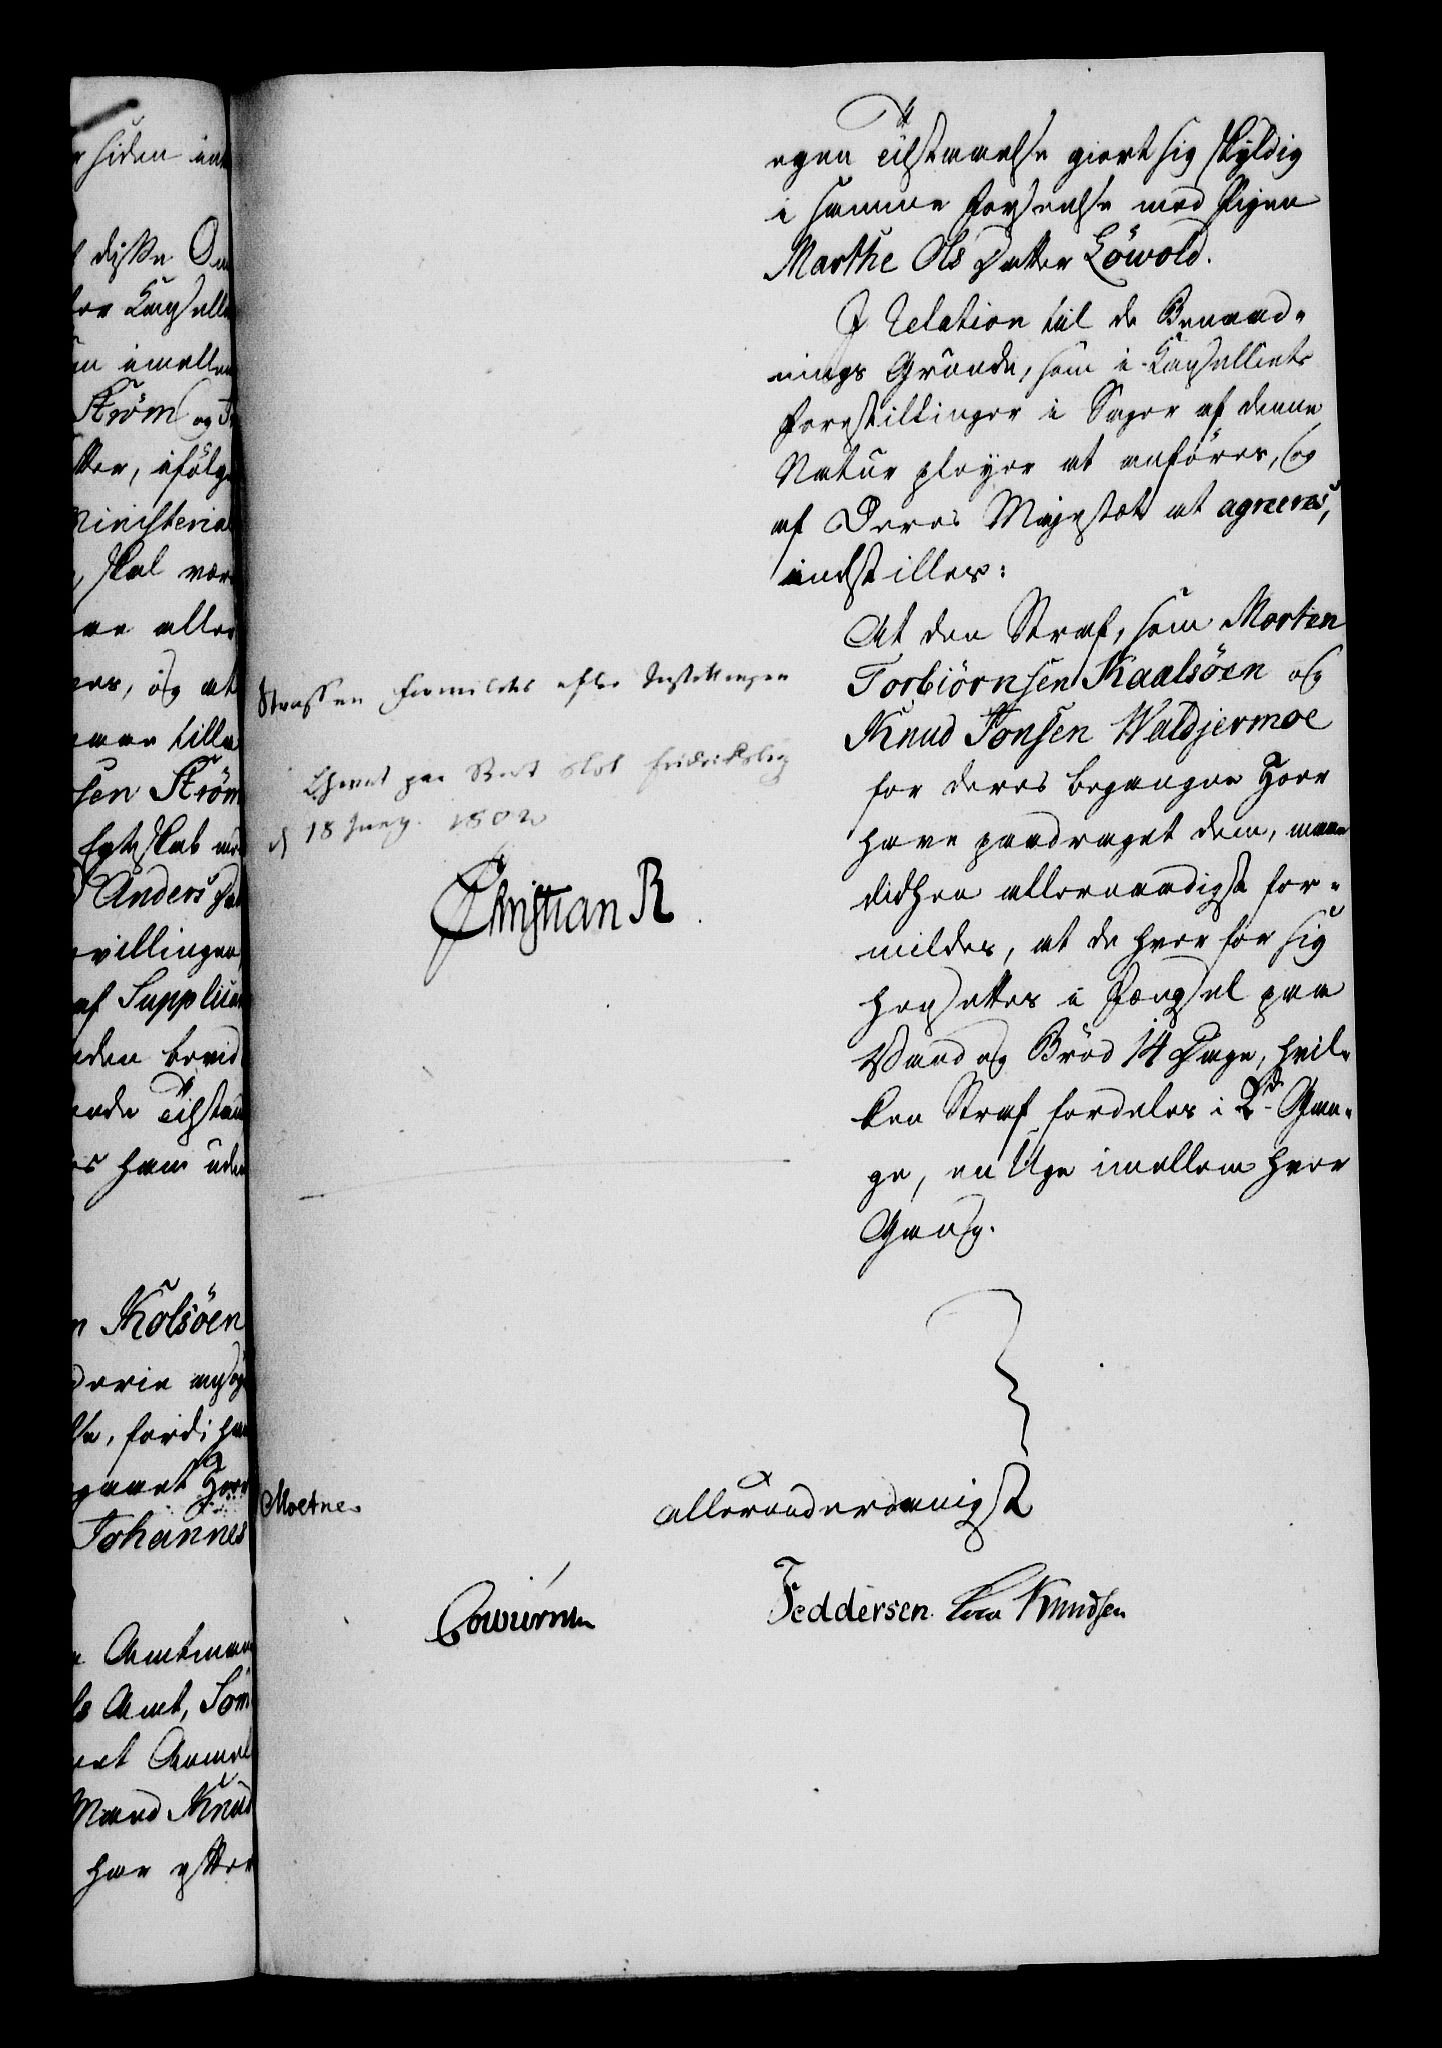 r siden
diske
for Cancellie
imellem
Strøm og
tter, ifølge
Ministerial
, skal være
aller
es, og at
tille
sen Strøm
Egteskab
Anders
villingen,
af Supplican
uden
Tilstaa
s ham uden
n Kolsöen
derie
, fordi han
gaaet Hoer
Johannes
n Amtmand
Amt,
Mand Knud
har
egen Tilstaaelse giort sig skyldig
i samme Forseelse med Pigen
Marthe Ols Datter Löwold.
I Relation til de Benaad-
nings Grunde, som i Cancelliets
Forestillinger i Sager af denne
Natur pleyer at anföres, og
af Deres Majestæt at agreeres,
indstilles:
At den Straf, som Morten
Torbiörnsen Kaalsöen og
Knud Jonsen Waldjermoe
for deres begangne Hoer
have paadraget dem, maae
didhen allernaadigst for-
mildes, at de hver for sig
hensettes i Fængsel paa
Vand og Bröd 14 Dage, hvil-
ken Straf fordeles i 2de Gan-
ge, en Uge imellem hver
Gang.
Straffen formildes efter Instillingen
paa Slot Fridrichsberg
d 18 Juny 1802
Christian R
Moetnes
allerunderdanigst
Feddersen. Knudsen